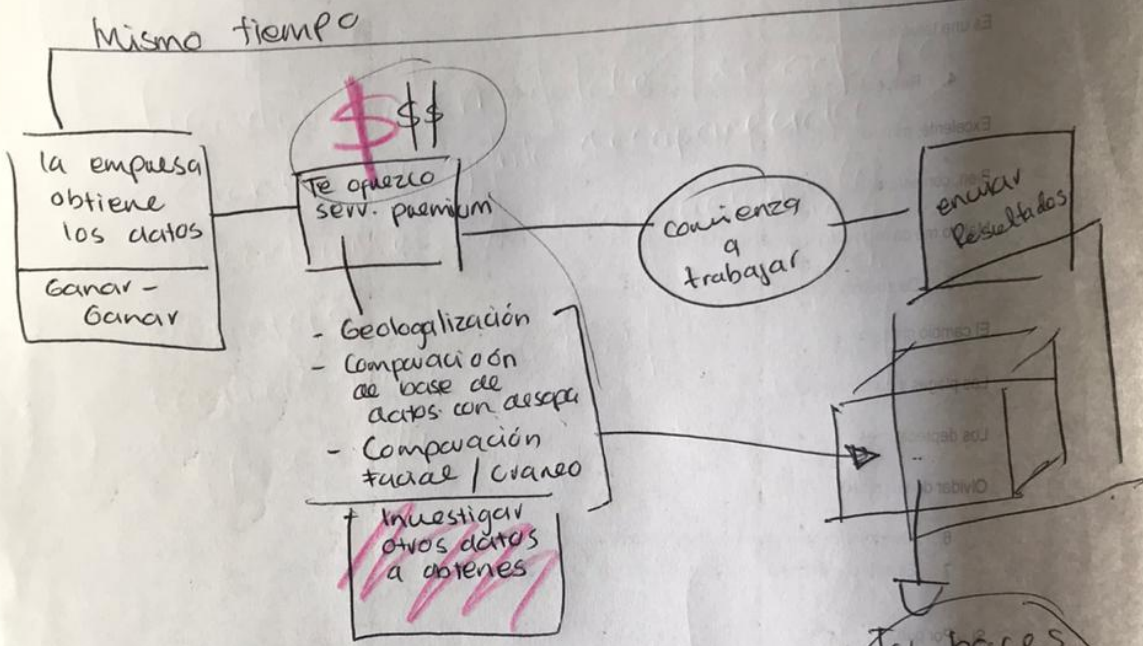 Mismo tiempo
$ $$
la empresa
obtiene
los datos
Ganar-
Ganar
Te ofrezco
serv. premium
- Geologalización
- Comparacioón
de base de
datos con desapa
- Comparación
Facial / Craneo
Investigar
otros datos
a obtenes
comienza
a
trabajar
enviar
Resultados
Tu haces